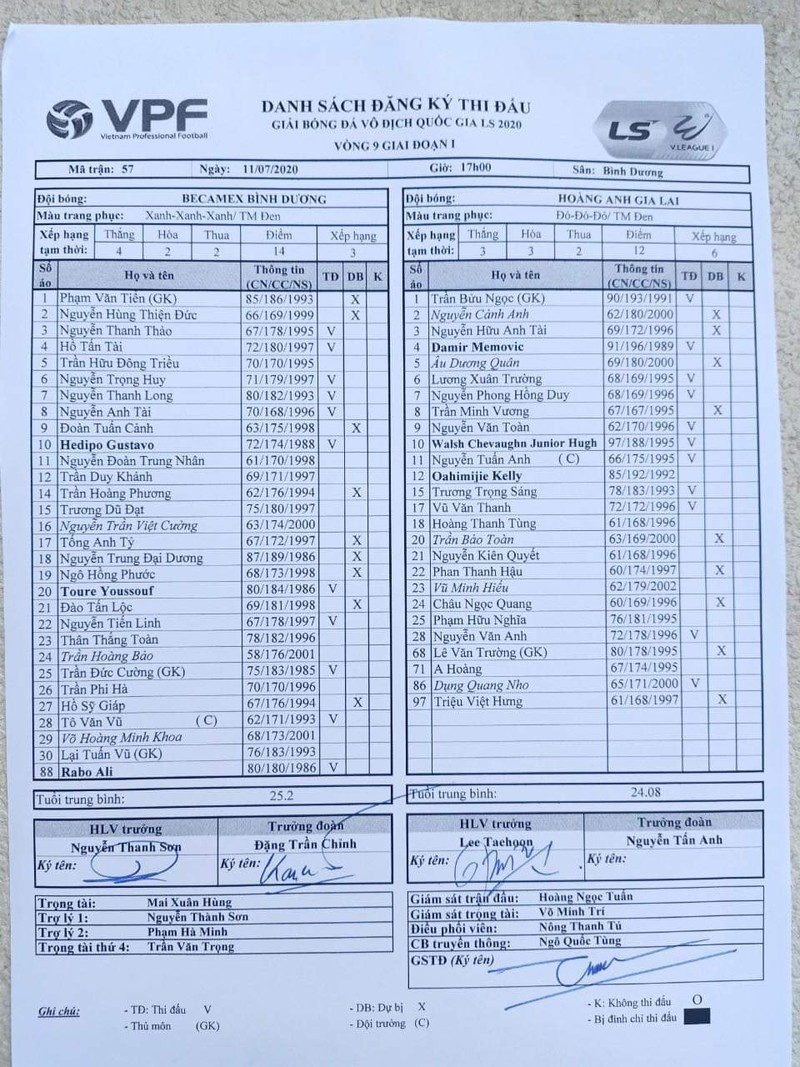 VPF
Vietnam Professional Football
DANH SÁCH ĐĂNG KÝ THI ĐẤU
GIẢI BÓNG ĐÁ VÔ ĐỊCH QUỐC GIA LS 2020
VÒNG 9 GIAI ĐOẠN I
LS
V.LEAGUE 1
Mã trận: 57 Ngày: 11/07/2020 Giờ: 17h00 Sân: Bình Dương
Đội bóng: BECAMEX BÌNH DƯƠNG
Màu trang phục: Xanh-Xanh-Xanh/ TM Đen
Xếp hạng Thắng Hòa Thua Điểm Xếp hạng
tạm thời: 4 2 2 14 3
Số áo Họ và tên Thông tin (CN/CC/NS) TĐ DB K
1 Phạm Văn Tiến (GK) 85/186/1993 X
2 Nguyễn Hùng Thiện Đức 66/169/1999 X
3 Nguyễn Thanh Thảo 67/178/1995 V
4 Hồ Tấn Tài 72/180/1997 V
5 Trần Hữu Đông Triều 70/170/1995
6 Nguyễn Trọng Huy 71/179/1997 V
7 Nguyễn Thanh Long 80/182/1993 V
8 Nguyễn Anh Tài 70/168/1996 V
9 Đoàn Tuấn Cảnh 63/175/1998 X
10 Hedipo Gustavo 72/174/1988 V
11 Nguyễn Đoàn Trung Nhân 61/170/1998
12 Trần Duy Khánh 69/171/1997
14 Trần Hoàng Phương 62/176/1994 X
15 Trương Dũ Đạt 75/180/1997
16 Nguyễn Trần Việt Cường 63/174/2000
17 Tống Anh Tỷ 67/172/1997 X
18 Nguyễn Trung Đại Dương 87/189/1986 X
19 Ngô Hồng Phước 68/173/1998 X
20 Toure Youssouf 80/184/1986 V
21 Đào Tấn Lộc 69/181/1998 X
22 Nguyễn Tiến Linh 67/178/1997 V
23 Thân Thắng Toàn 78/182/1996
24 Trần Hoàng Bảo 58/176/2001
25 Trần Đức Cường (GK) 75/183/1985 V
26 Trần Phi Hà 70/170/1996
27 Hồ Sỹ Giáp 67/176/1994 X
28 Tô Văn Vũ (C) 62/171/1993 V
29 Võ Hoàng Minh Khoa 68/173/2001
30 Lại Tuấn Vũ (GK) 76/183/1993
88 Rabo Ali 80/180/1986 V
Tuổi trung bình: 25.2
HLV trưởng Trưởng đoàn
Nguyễn Thanh Sơn Đặng Trần Chỉnh
Ký tên: Ký tên:
Trọng tài: Mai Xuân Hùng
Trợ lý 1: Nguyễn Thành Sơn
Trợ lý 2: Phạm Hà Minh
Trọng tài thứ 4: Trần Văn Trọng
Đội bóng: HOÀNG ANH GIA LAI
Màu trang phục: Đỏ-Đỏ-Đỏ/ TM Đen
Xếp hạng Thắng Hòa Thua Điểm Xếp hạng
tạm thời: 3 3 2 12 6
Số áo Họ và tên Thông tin (CN/CC/NS) TĐ DB K
1 Trần Bửu Ngọc (GK) 90/193/1991 V
2 Nguyễn Cảnh Anh 62/180/2000 X
3 Nguyễn Hữu Anh Tài 69/172/1996 X
4 Damir Memovic 91/196/1989 V
5 Âu Dương Quân 69/180/2000 X
6 Lương Xuân Trường 68/169/1995 V
7 Nguyễn Phong Hồng Duy 68/169/1996 V
8 Trần Minh Vương 67/167/1995 X
9 Nguyễn Văn Toàn 62/170/1996 V
10 Walsh Chevaughn Junior Hugh 97/188/1995 V
11 Nguyễn Tuấn Anh (C) 66/175/1995 V
12 Oahimijie Kelly 85/192/1992
15 Trương Trọng Sáng 78/183/1993 V
17 Vũ Văn Thanh 72/172/1996 V
18 Hoàng Thanh Tùng 61/168/1996
20 Trần Bảo Toàn 63/169/2000 X
21 Nguyễn Kiên Quyết 61/168/1996
22 Phan Thanh Hậu 60/174/1997 X
23 Vũ Minh Hiếu 62/179/2002
24 Châu Ngọc Quang 60/169/1996 X
25 Phạm Hữu Nghĩa 76/181/1995
28 Nguyễn Văn Anh 72/178/1996 V
68 Lê Văn Trường (GK) 80/178/1995 X
71 A Hoàng 67/174/1995
86 Dụng Quang Nho 65/171/2000 V
97 Triệu Việt Hưng 61/168/1997 X
Tuổi trung bình: 24.08
HLV trưởng Trưởng đoàn
Lee Taehoon Nguyễn Tấn Anh
Ký tên: Ký tên:
Giám sát trận đấu: Hoàng Ngọc Tuấn
Giám sát trọng tài: Võ Minh Trí
Điều phối viên: Nông Thanh Tú
CB truyền thông: Ngô Quốc Tùng
GSTĐ (Ký tên)
Ghi chú: - TĐ: Thi đấu V - DB: Dự bị X - K: Không thi đấu O
- Thủ môn (GK) - Đội trưởng (C) - Bị đình chỉ thi đấu